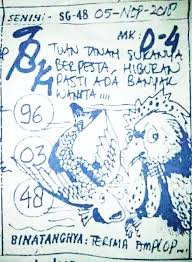 SENIN: - SG-48 05-NOP-2018
MK: 0-4
TUAN TANAH SUKANYA
BERPESTA, HIBURAN
PASTI ADA BANYAK
WANITA....
96
03
48
BINATANGNYA: TERIMA AMPLOP...